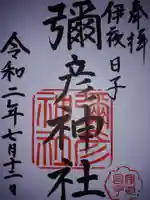 奉拝
伊夜日子
彌彦神社
令和二年七月十二日